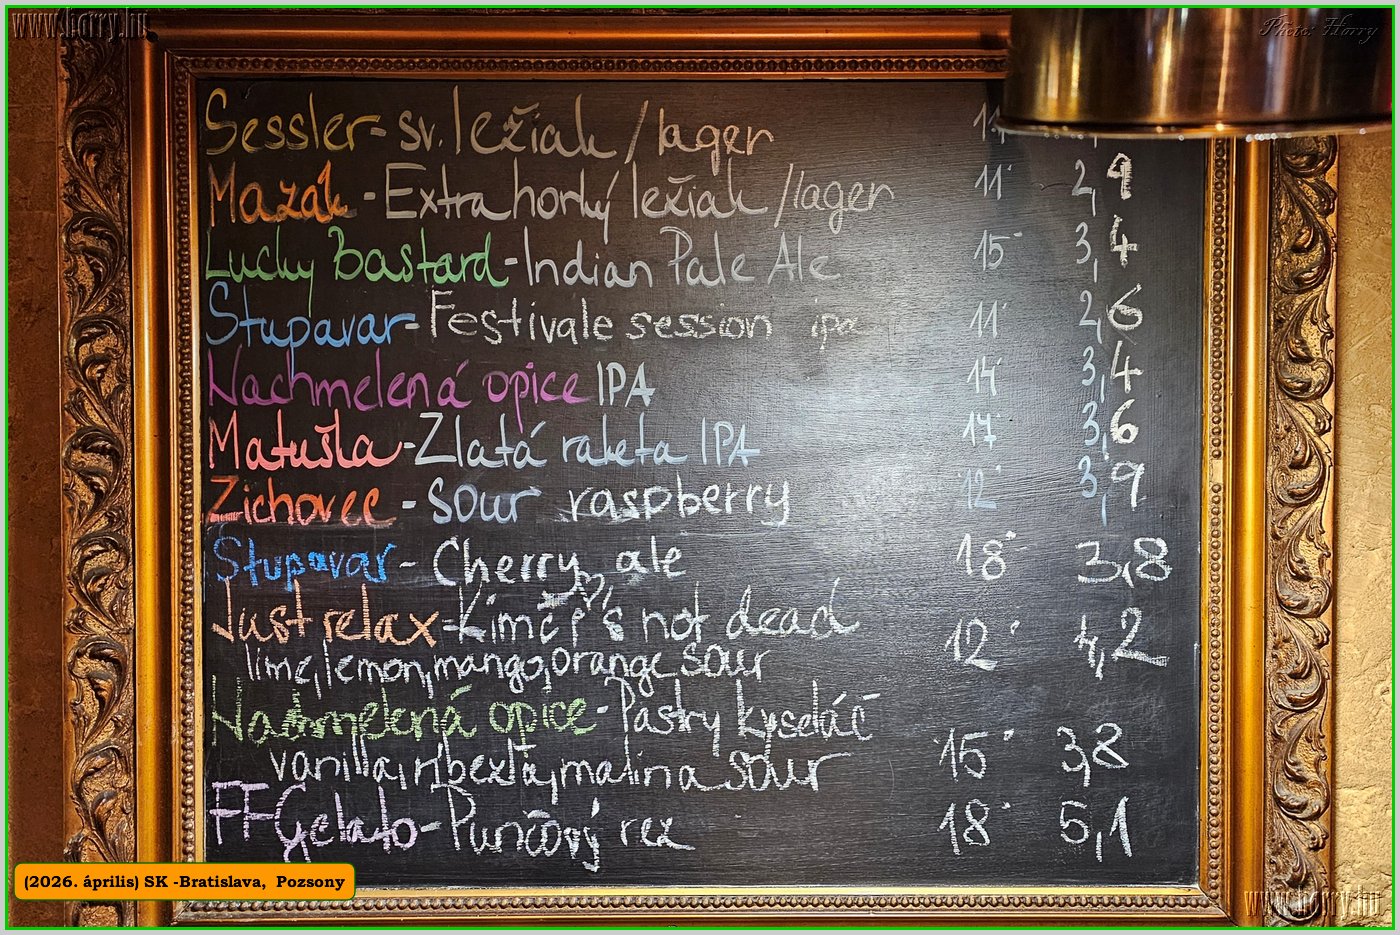 www.horry.hu
Photo: Horry
Sessler - sv. ležiak / lager
Mazák - Extra horký ležiak / lager 11° 2,9
Lucky Bastard - Indian Pale Ale 15° 3,4
Stupavar - Festivale session ipa 11° 2,6
Nachmelená opice IPA 14° 3,4
Matušla - Zlatá raketa IPA 17° 3,6
Zichovec - sour raspberry 12° 3,9
Stupavar - Cherry ale 18° 3,8
Just relax - Kimči's not dead 12° 4,2
lime, lemon, mango, orange sour
Nachmelená opice - Pastry kyseláč 15° 3,8
vanilla, malina sour
FF Gelato - Punčový rez 18° 5,1
(2026. április) SK -Bratislava, Pozsony
www.horry.hu